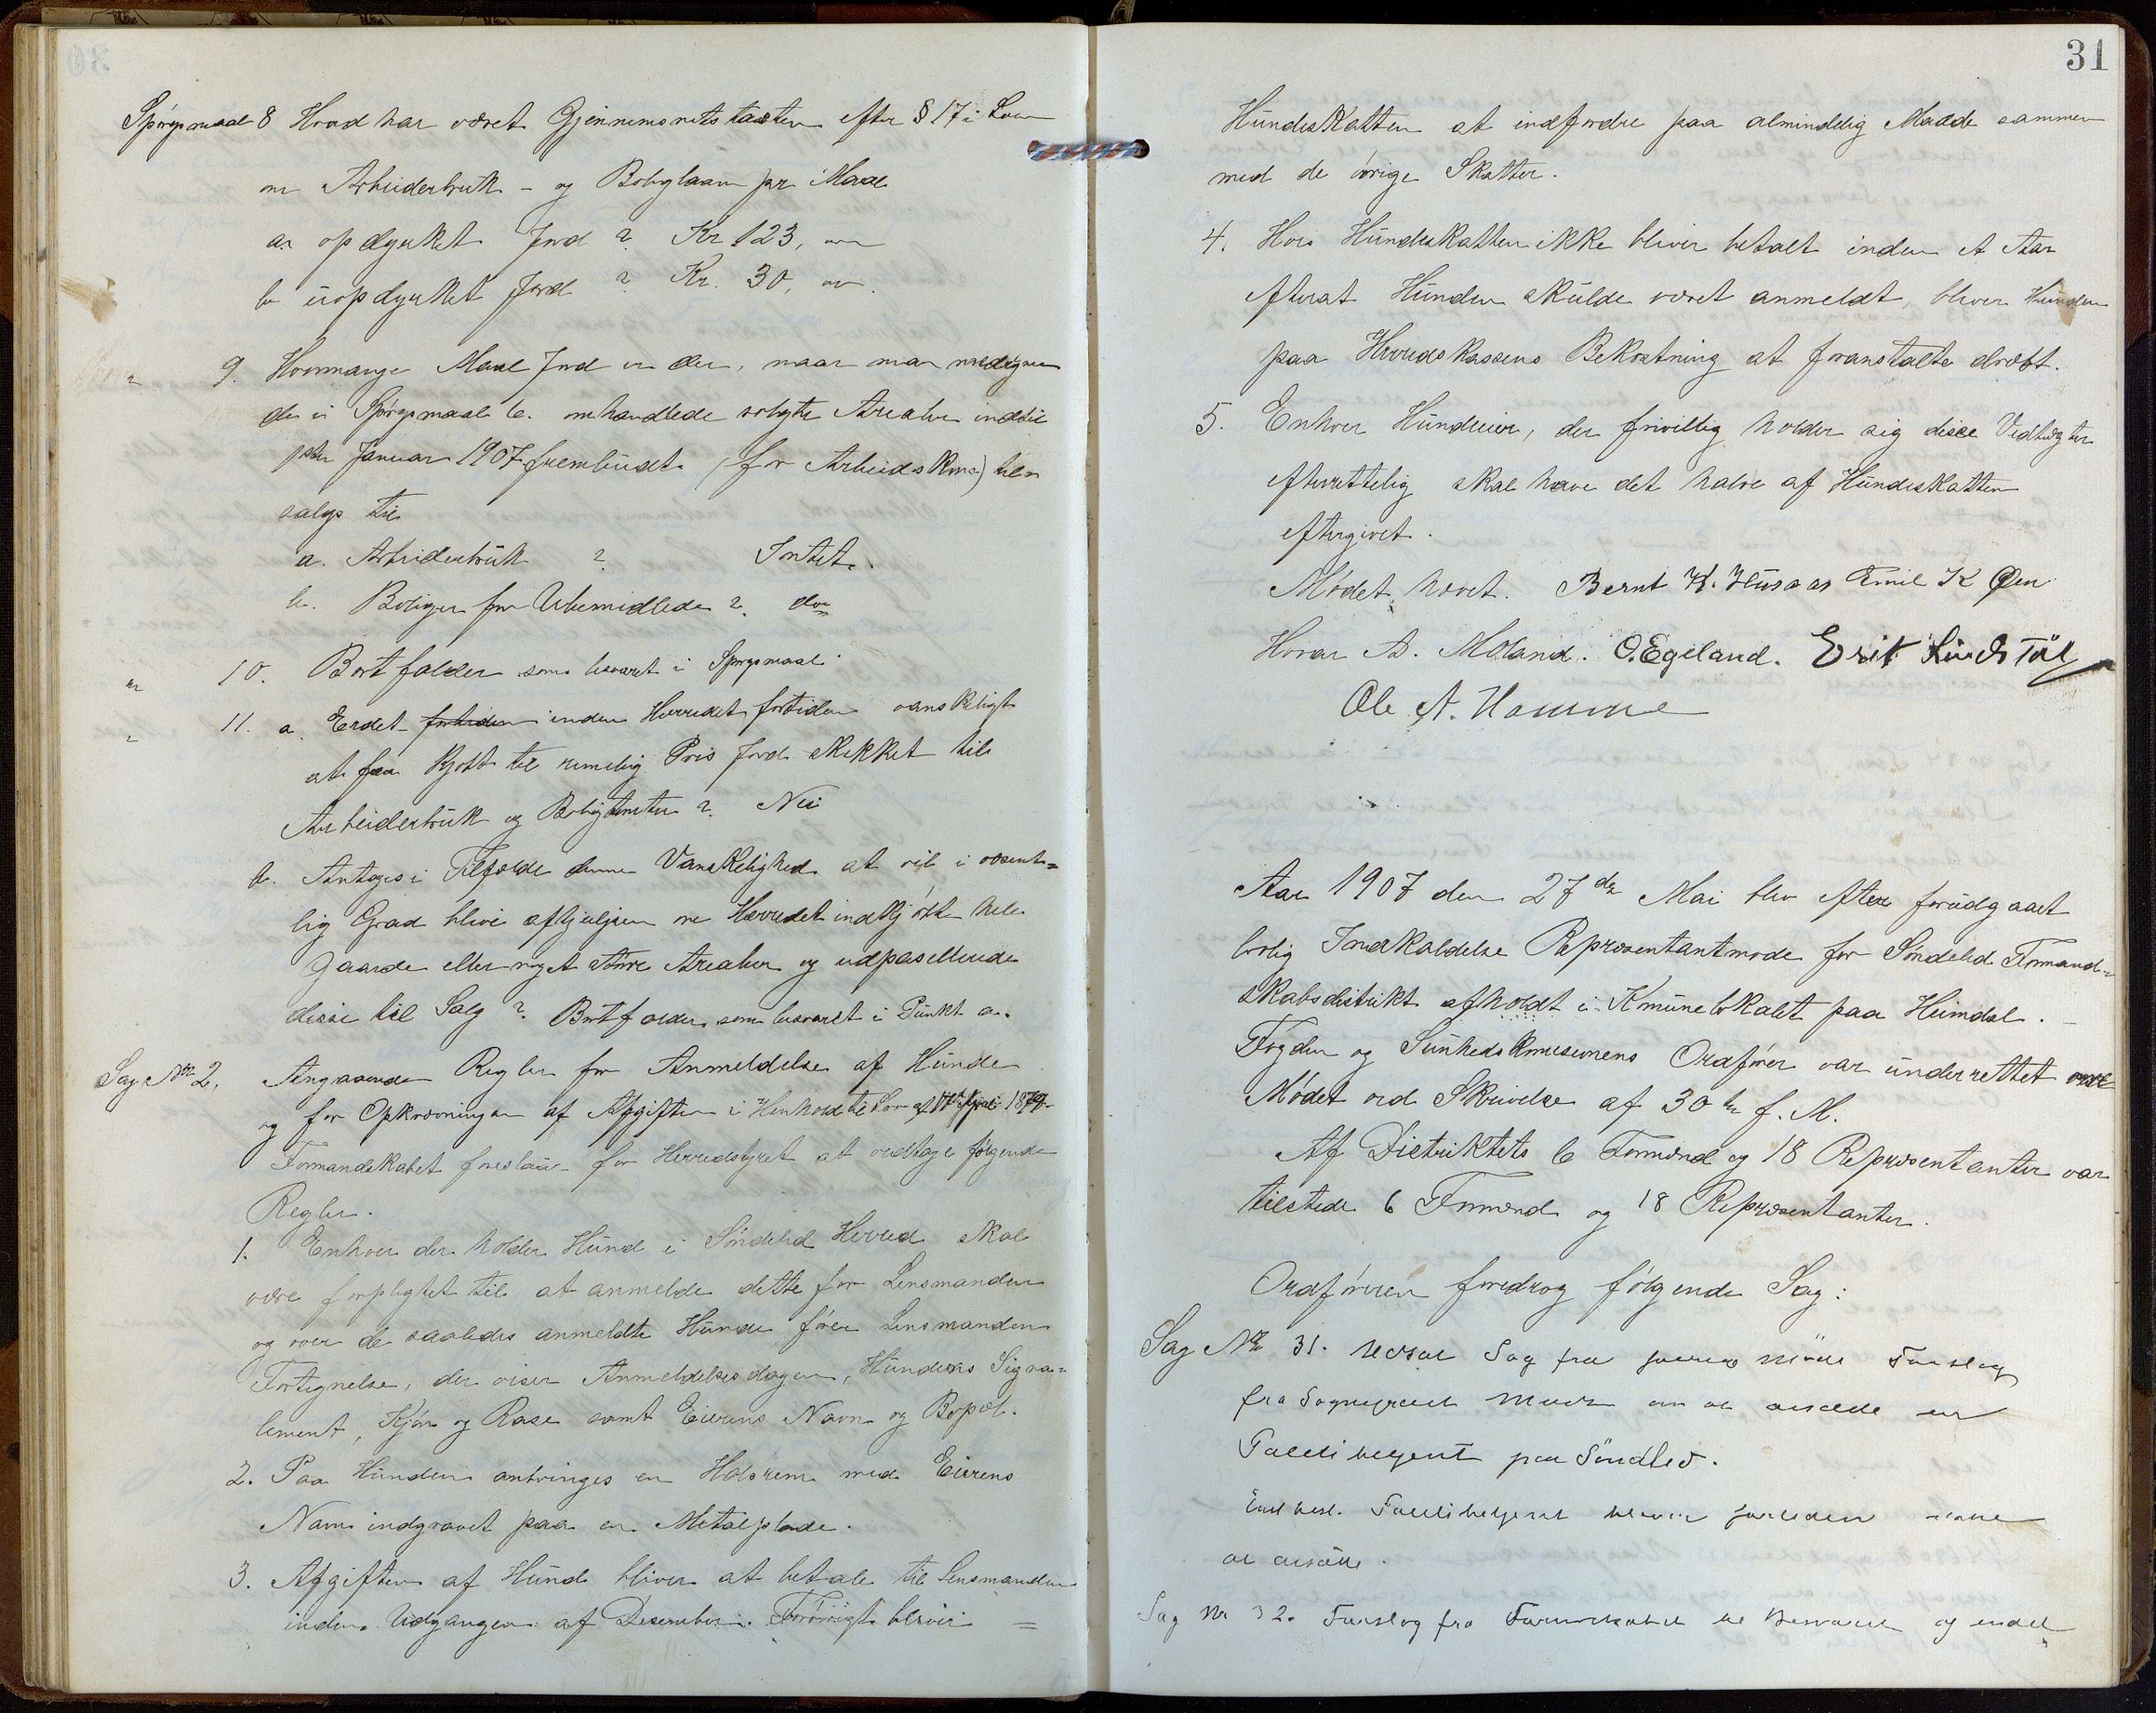 Spørgsmaal 8 Hvad har været Gjennemsnitstaxten efter § 17 i Lov
om Arbeiderbruk - og Boliglaan pr Maal
a. opdyrket Jord ? Kr 123,
b uopdyrket Jord ? Kr. 30,
" 9. Hvormange Maal Jord er der, naar man medregner
de i Spørgsmaal 6. omhandlede solgte Arealer indtil
1ste Januar 1907 frembudt (for Arbeidskom:) til
salgs til
a. Arbeiderbruk ? Intet.
b. Boliger for Ubemidlede ? do
" 10. Bortfalder som besvaret i Spørgsmaal
" 11. a. Er det fortiden inden Herredet fortiden vanskeligt
at faa kjøbt til rimelig Pris Jord skikket til
Arbeiderbruk og Boligtomter ? Nei
b. Antages i Tilfælde denne Vanskelighed at vil i væsent=
lig Grad blive afhjulpen om Herredet indkjøbte hele
Gaarde eller noget større Arealer og udpasellerede
disse til Salg ? Bortfalder som besvaret i Punkt a.
Sag No 2. Angaaende Regler for Anmeldelse af Hunde
og for Opkrævningen af Afgiften i Henhold til Lov af 17de April 1879.
Formandskabet foreslaar for Herredstyret at vedtage følgende
Regler.
1. Enhver der holder Hund i Søndeled Herred skal
være forpligtet til at anmelde dette for Lensmanden
og over de saaledes anmeldte Hunde fører Lensmanden
Fortegnelse, der viser Anmeldelsesdagen, Hundens Signa=
lement, Kjøn og Rase samt Eierens Navn og Bopæl.
2. Paa Hunden anbringes en Halsrem med Eierens
Navn indgravet paa en Metalplade.
3. Afgiften af Hund bliver at betale til Lensmanden
inden Udgangen af Desember. Forøvrigt bliver =
31
Hundeskatten at indfordre paa almindelig Maade sammen
med de øvrige Skatter.
4. Hvis Hundeskatten ikke bliver betalt inden et Aar
efterat Hunden skulde været anmeldt, bliver Hunden
paa Herredskassens Bekostning at foranstalte dræbt.
5. Enhver Hundeeier, der frivillig holder sig disse Vedtægter
efterrettelig skal have det halve af Hundeskatten
eftergivet.
Mødet hævet. Bernt K. Husaas Emil K Øen
Hovar A. Moland. O. Egeland. Erik Lindstøl
Ole A. Homme
Aar 1907 den 27de Mai blev efter forudgaaet
lovlig Indkaldelse Repræsentantmøde for Søndeled Formand=
skabsdistrikt afholdt i Komunelokalet paa Heimdal.
Fogden og Sunhedskomisionens Ordfører var underrettet om
Mødet ved Skrivelse af 30te f. M.
Af Distriktets 6 Formænd og 18 Repræsentanter var
tilstede 6 Formænd og 18 Repræsentanter.
Ordføreren foredrog følgende Sag:
Sag No 31. Udsat Sag fra forrige møde Forslag
fra Sogneprest om at ansætte en
Politibetjent paa Søndled.
Politibetjent bliver fortiden ikke
at ansætte.
Sag No 32. Forslag fra Formskabet og endel